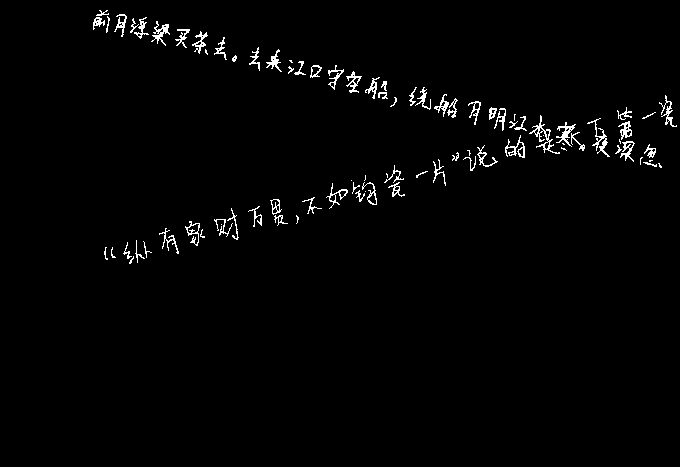 前月浮梁买茶去。去来江口守空船，绕船月明江水寒。夜深忽
“纵有家财万贯，不如钧瓷一片”说的是天下第一瓷